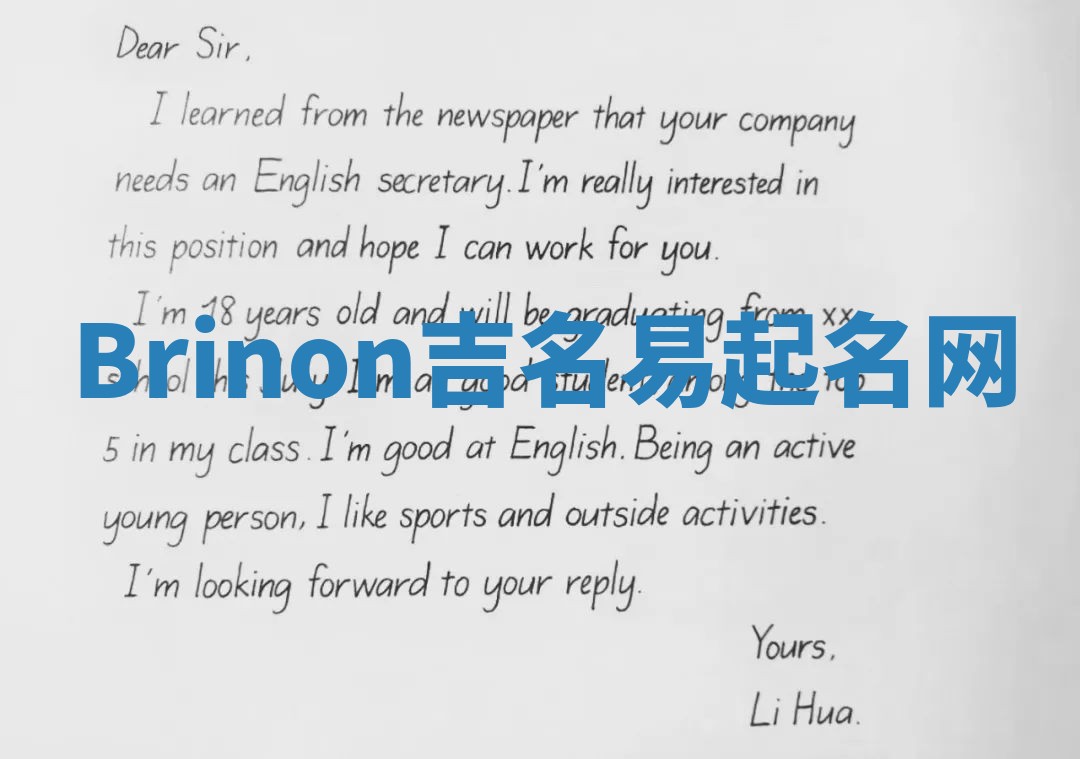 Dear Sir,
I learned from the newspaper that your company
needs an English secretary. I'm really interested in
this position and hope I can work for you.
I'm 18 years old and will be graduating from xx
Brinon吉名易起名网
school this July. I'm a good student among the top
5 in my class. I'm good at English. Being an active
young person, I like sports and outside activities.
I'm looking forward to your reply.
Yours,
Li Hua.